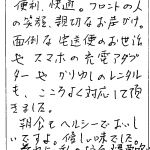 便利、快適。フロントの人
の笑顔、親切なお声がけ。
面倒な宅送便のお世話
や、スマホの充電アダプ
ターや、かりゆしのレンタル
も、こころよく対応して頂
きました。
朝食もヘルシーでおいし
いですます。優しい味でした。